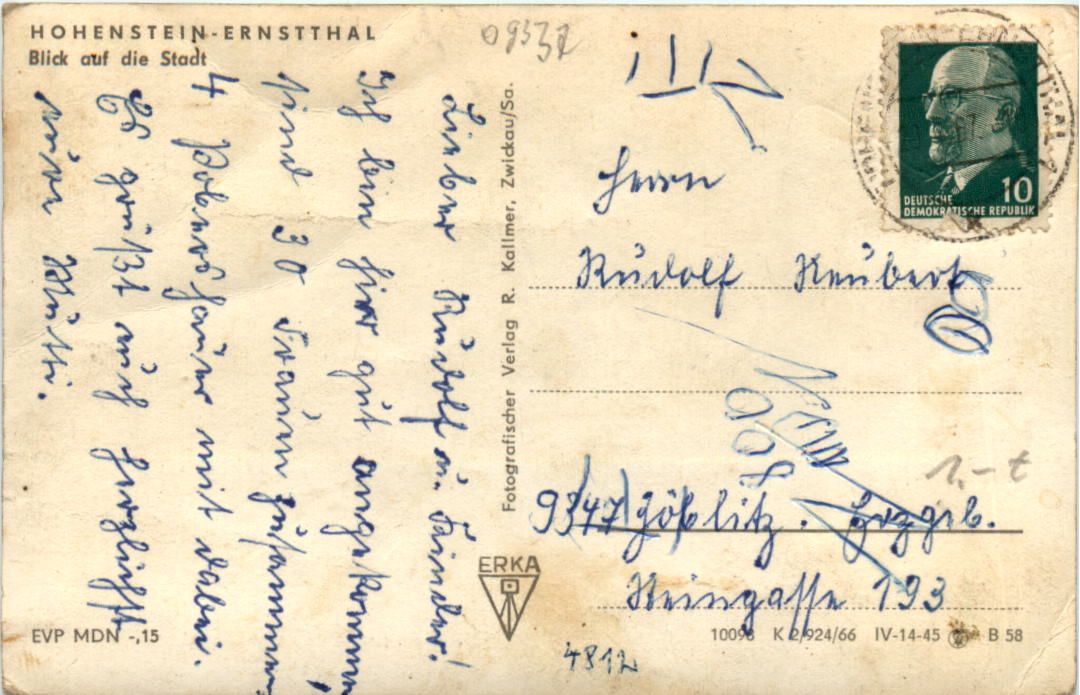 HOHENSTEIN-ERNSTTHAL
Blick auf die Stadt
09337
Lieber Rudolf u. Kinder!
Ich bin hier gut angekommen,
sind 30 Frauen zusammen,
4 Pobershauer mit dabei.
Es grüßt euch herzlichst
eure Mutti.
Fotografischer Verlag R. Kallmer, Zwickau/Sa.
DEUTSCHE
DEMOKRATISCHE REPUBLIK
10
Herrn
Rudolf Neubert
9347 Zöblitz. Erzgeb.
Steingasse 193
1.- t
ERKA
EVP MDN -,15
10098 K 2/924/66 IV-14-45 B 58
4812